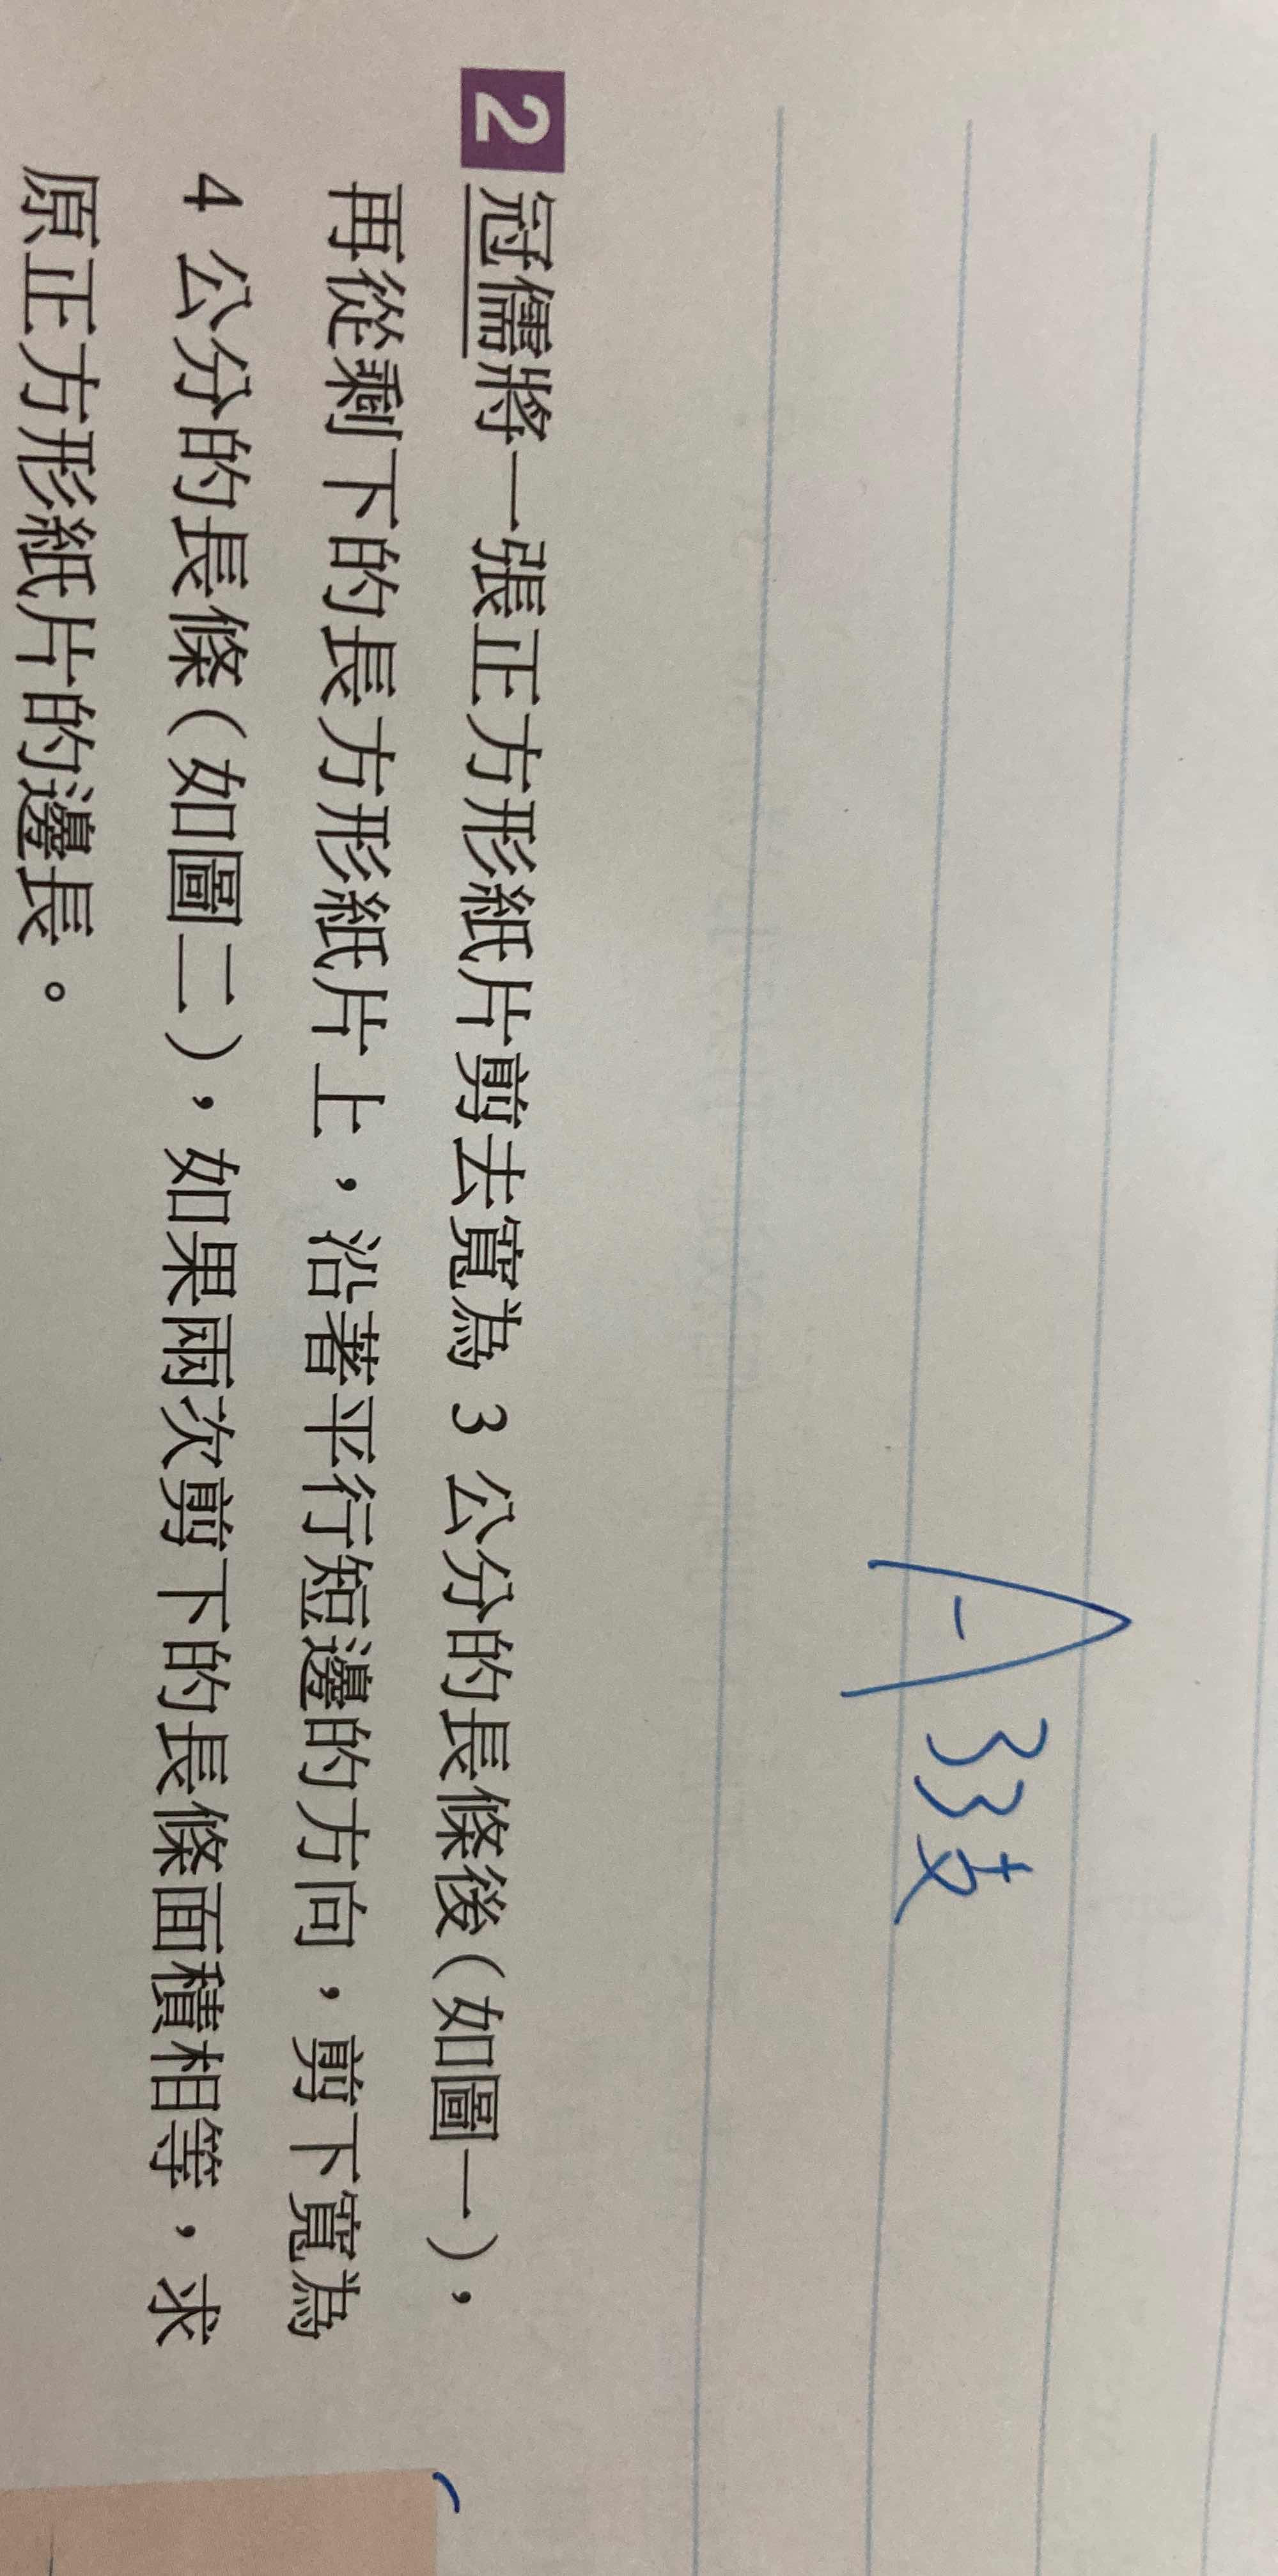 A-33支
2 冠儒將一張正方形紙片剪去寬為 3 公分的長條後(如圖一),
再從剩下的長方形紙片上,沿著平行短邊的方向,剪下寬為
4 公分的長條(如圖二),如果兩次剪下的長條面積相等,求
原正方形紙片的邊長。